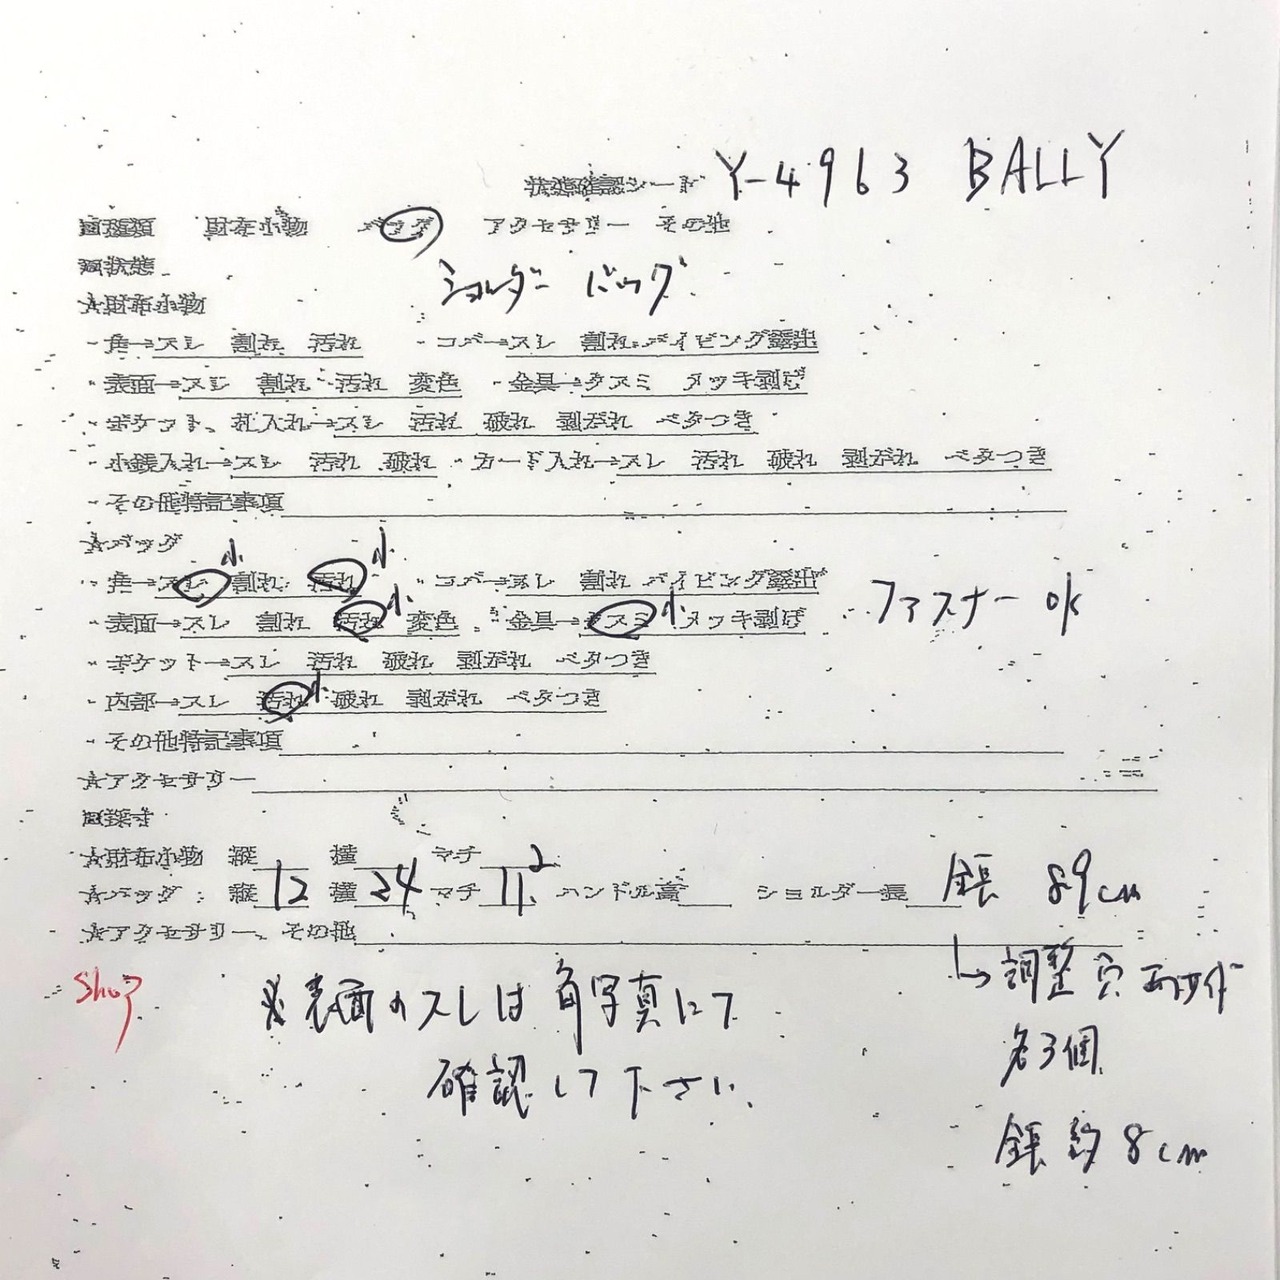 状態確認シート Y-4963 BALLY
■種類 財布小物 バッグ アクセサリー その他
■状態
ショルダーバッグ
★財布小物
・角→スレ 割れ 汚れ ・コバ→スレ 割れ パイピング露出
・表面→スレ 割れ 汚れ 変色 ・金具→クスミ メッキ剥げ
・ポケット、札入れ→スレ 汚れ 破れ 剥がれ ベタつき
・小銭入れ→スレ 汚れ 破れ ・カード入れ→スレ 汚れ 破れ 剥がれ ベタつき
・その他特記事項
★バッグ
小 小
・角→スレ 割れ 汚れ ・コバ→スレ 割れ パイピング露出
・表面→スレ 割れ 汚れ 小 変色 ・金具→クスミ 小 メッキ剥げ ファスナー ok
・ポケット→スレ 汚れ 破れ 剥がれ ベタつき
・内部→スレ 汚れ 小 破れ 剥がれ ベタつき
・その他特記事項
★アクセサリー
■採寸
★財布小物 縦 横 マチ
★バッグ：縦 12 横 24 マチ 11.2 ハンドル高 ショルダー長 全長 89cm
★アクセサリー、その他
Shop ※表面のスレは角写真にて
確認して下さい.
↳調整穴
各3個
全長約8cm